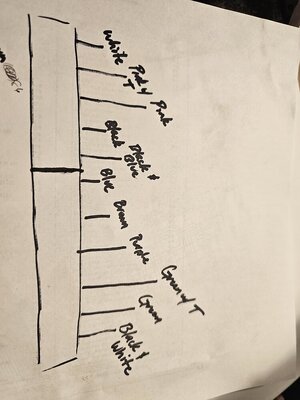 White
Pink w/
T
Pink
Black
Black &
Blue
Blue
Brown
Purple
Green w/ T
Green
Black &
White